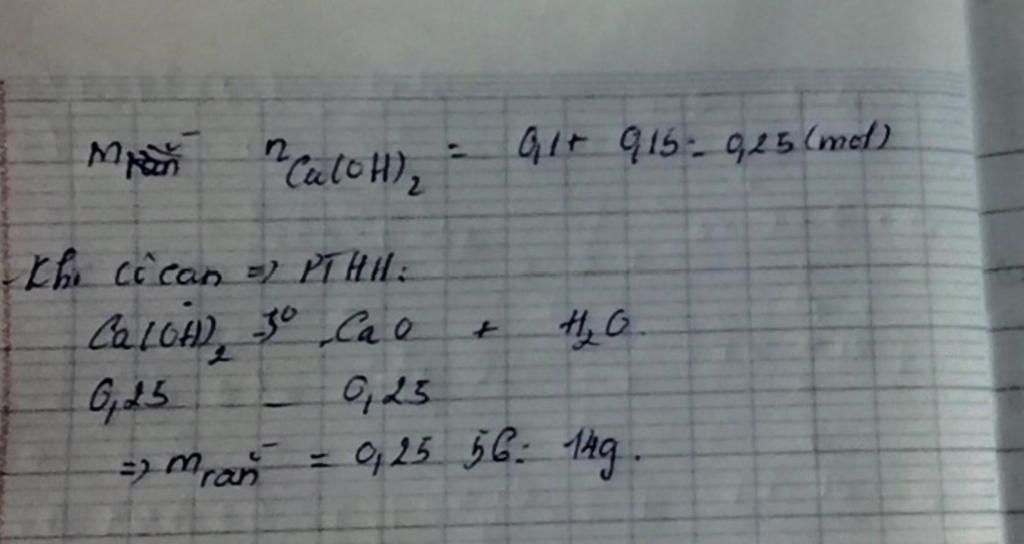 n Ca(OH)₂ = 0,1 + 0,15 = 0,25 (mol)
- Khi cô cạn => PTHH:
Ca(OH)₂ -t°> CaO + H₂O.
0,25 - 0,25
=> m rắn = 0,25 56 = 14g.